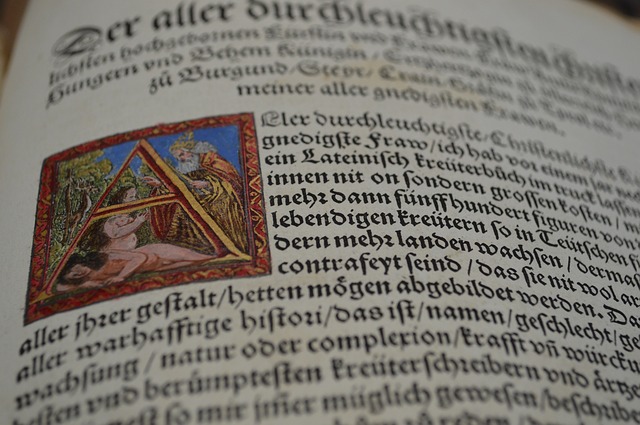 Der aller durchleuchtigisten
lichsten hochgebornen Fürstin vnd Frawen
Hungern vnd Behem Künigin
zů Burgund/Steyr/Crain
meiner aller gnedigsten Frawen.
A
Ller durchleuchtigste/Christenlichste
gnedigste Fraw/ich hab vor einem jar
ein Lateinisch kreüterbůch im truck lassen
innen nit on sondern grossen kosten/
mehr dann fünffhundert figuren von
lebendigen kreütern so in Teütschen
dern mehr landen wachsen/dermas
contrafeyt seind/das sie nit wol
aller jhrer gestalt/hetten mögen abgebildet werden.
aller warhafftige histori/das ist/namen/geschlecht/
wachsung/natur oder complexion/krafft vñ würckung
besten vnd berümptesten kreüterschreibern vnd
so mir jm̃er müglich gewesen/